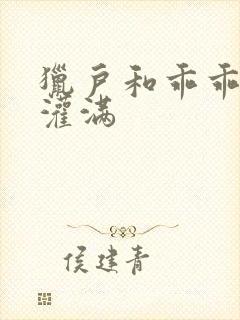 獵户和乖乖
灌满
侯建青